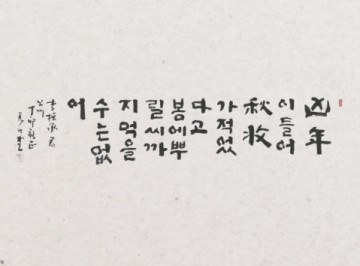 凶年
이들어
秋收
가적었
다고
봄에뿌
릴씨까
지먹을
수는없
어